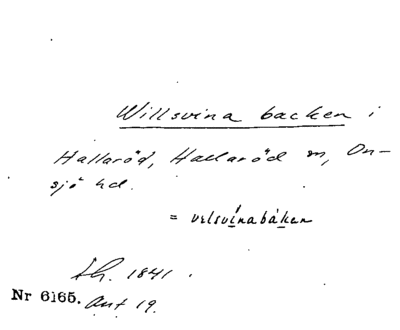 Willsvina backen i
Hallaröd, Hallaröd sn, On-
sjö hd.
= velsvinabáken
Sk. 1841.
Nr 6165. Ant 19.